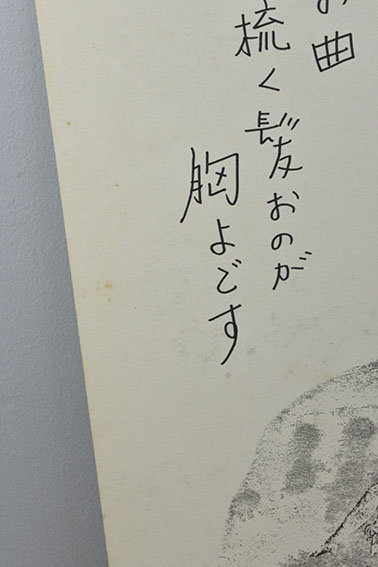 曲
梳く髪おのが
胸よごす